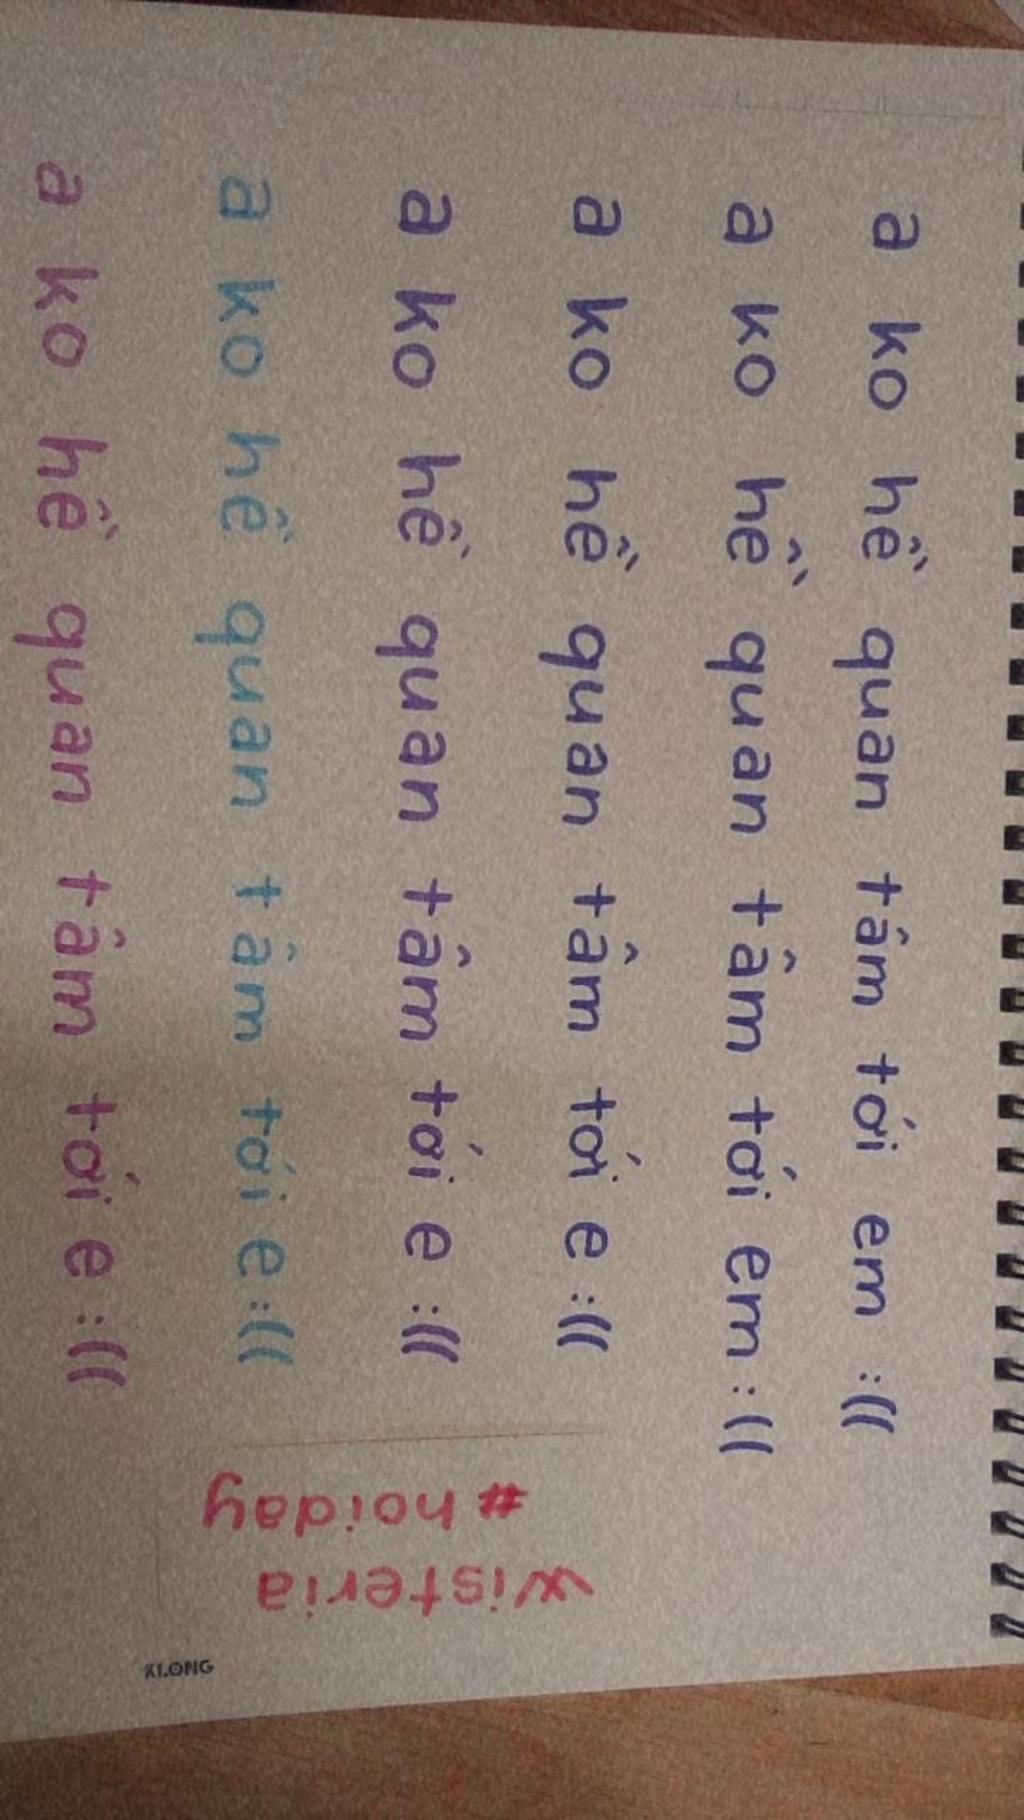 a ko hề quan tâm tới em :((
a ko hề quan tâm tới em :((
a ko hề quan tâm tới e :((
a ko hề quan tâm tới e :((
a ko hề quan tâm tới e :((
a ko hề quan tâm tới e :((
wisteria
#hoiday
KLONG